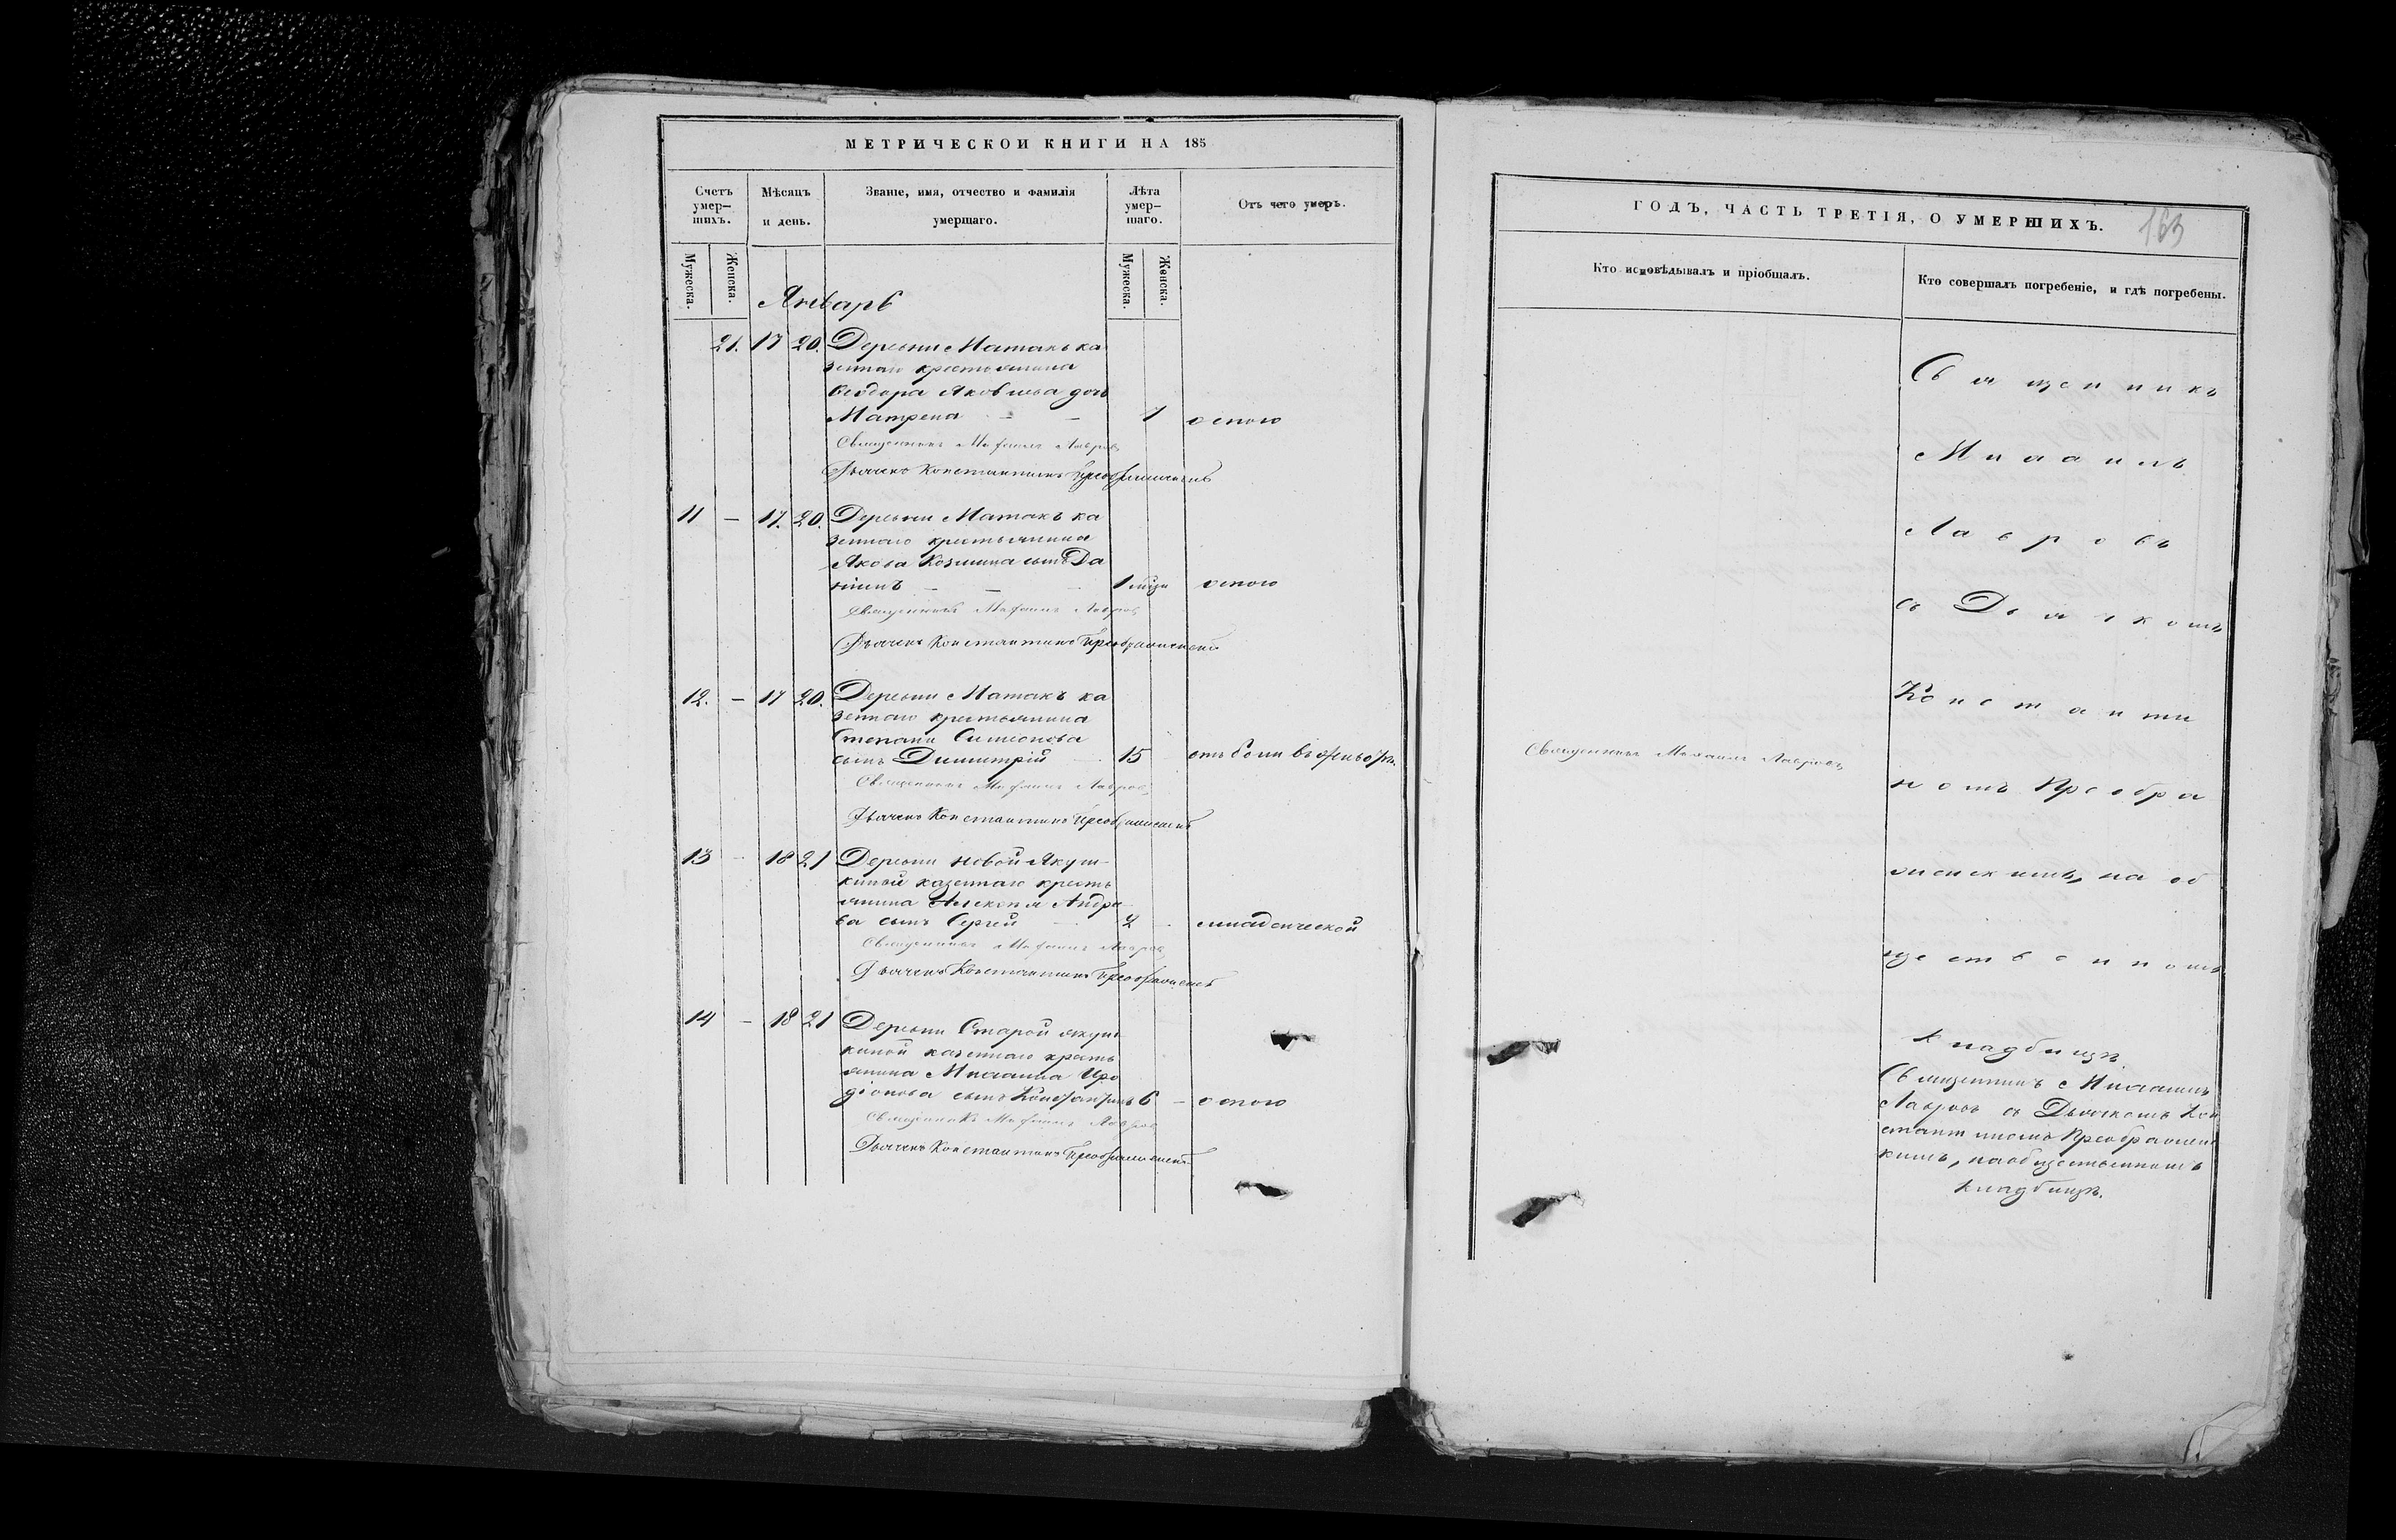 МЕТРИЧЕСКОЙ КНИГИ НА 185
Счетъ умер-шихъ.
Мѣсяцъ и день.
Званіе, имя, отчество и фамилія умершаго.
Лѣта умер-шаго.
Отъ чего умеръ.
Мужеска.
Женска.
Мужеска.
Женска.
Январь
21. 17 20. Деревни Матакъ ка
зеннаго крестьянина
Ѳеодора Яковлева дочь
Матрена - - 1 оспою
Священникъ Михаилъ Лавровъ
Дьячекъ Константинъ Преображенскій
11 - 17. 20. Деревни Матакъ ка
зеннаго крестьянина
Якова Козмина сынъ Да
ніилъ - - 1 оспою
Священникъ Михаилъ Лавровъ
Дьячекъ Константинъ Преображенскій
12. - 17 20. Деревни Матакъ ка
зеннаго крестьянина
Степана Симеонова
сынъ Димитрій 15 отъ боли въ
Священникъ Михаилъ Лавровъ
Дьячекъ Константинъ Преображенскій
13 - 18 21 Деревни Новой Якуш-
киной казеннаго кресть
янина Алексея Андре
ва сынъ Сергей - 2 младенческой
Священникъ Михаилъ Лавровъ
Дьячекъ Константинъ Преображенскій
14 - 18 21 Деревни Старой Якуш
киной казеннаго кресть
янина Михаила Иро
діонова сынъ Константинъ 6 - оспою
Священникъ Михаилъ Лавровъ
Дьячекъ Константинъ Преображенскій
ГОДЪ, ЧАСТЬ ТРЕТІЯ, О УМЕРШИХЪ.
163
Кто исповѣдывалъ и пріобщалъ.
Кто совершалъ погребеніе, и гдѣ погребены.
Священникъ
Михаилъ
Лавровъ
съ Дьячкомъ
Константи
Священникъ Михаилъ Лавровъ
номъ Преобра
женскимъ, на об
щественномъ
кладбищѣ
Священникъ Михаилъ
Лавровъ съ Дьячкомъ Кон
стантиномъ Преображенс
кимъ, на общественномъ
кладбищѣ.